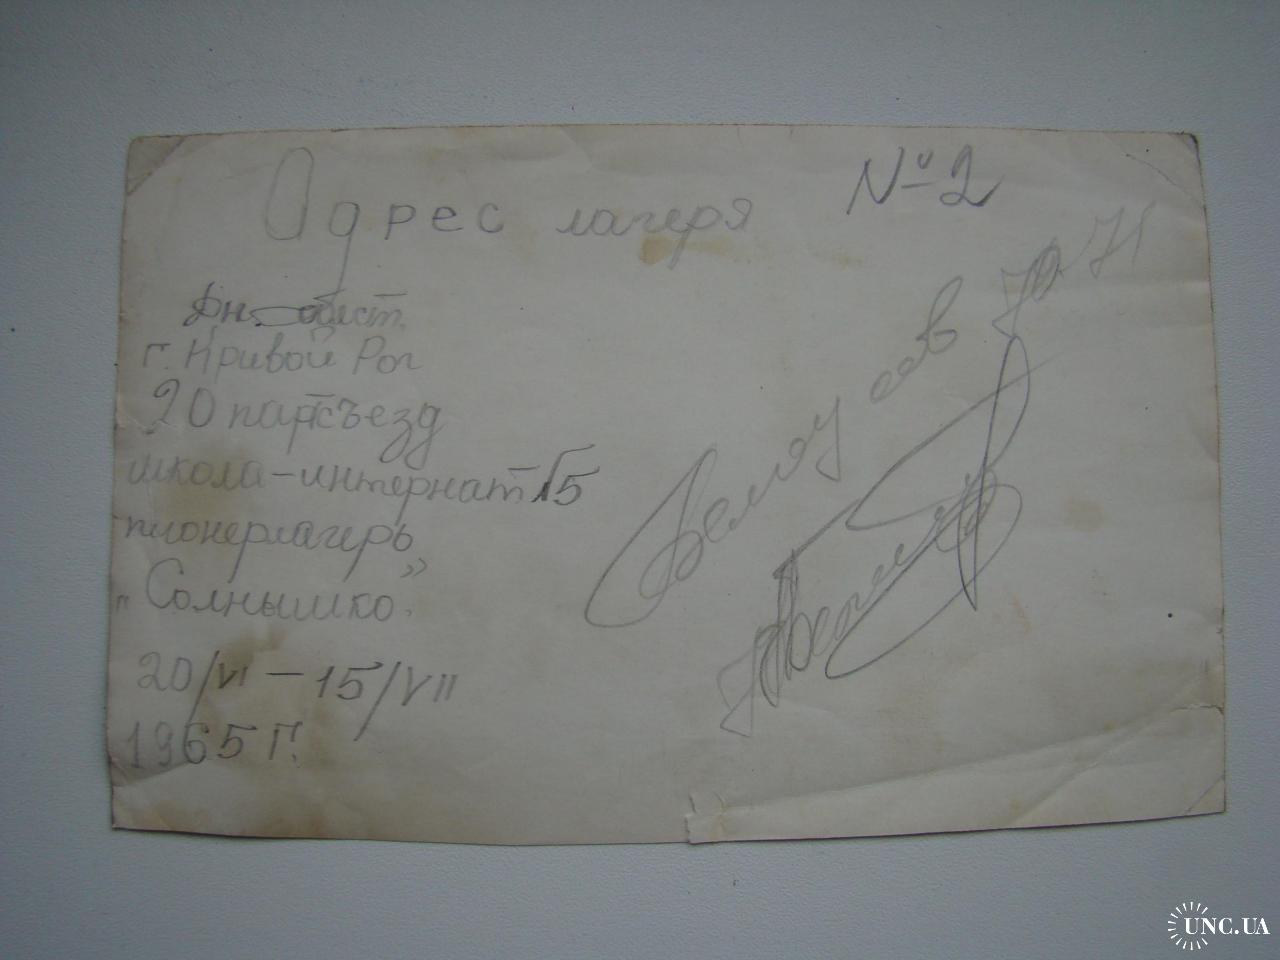 Адрес лагеря №2
Дн. област.
г. Кривой Рог
20 партсъезд
школа-интернат 15
пионерлагерь
„Солнышко”
20/VI – 15/VII
1965 г.
UNC.UA